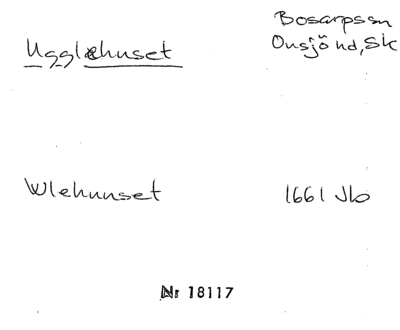 Ugglehuset
Bosarpssn
Onsjöhd, Sk
Wlehuuset
1661 Jb
Nr 18117